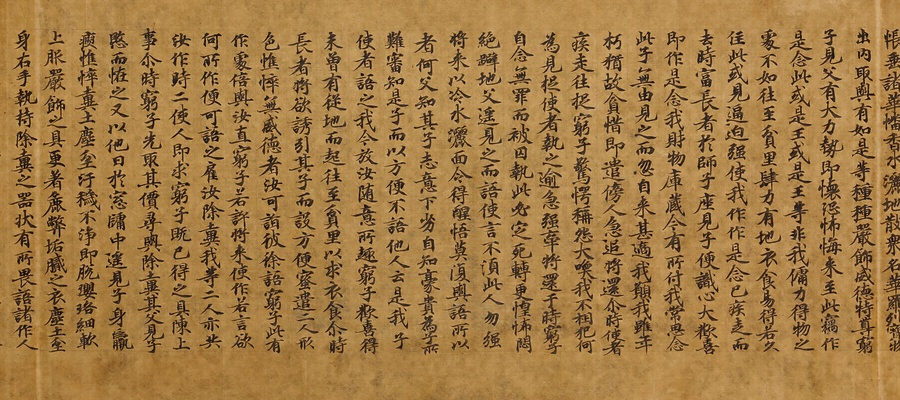 帳垂諸華幡香水灑地散衆名華羅列寶物
出内取與有如是等種種嚴飾威德特尊窮
子見父有大力勢即懷恐怖悔来至此竊作
是念此或是王或是王等非我傭力得物之
處不如往至貧里肆力有地衣食易得若久
住此或見逼迫强使我作作是念已疾走而
去時富長者於師子座見子便識心大歡喜
即作是念我財物庫藏今有所付我常思念
此子無由見之而忽自来甚適我願我雖年
朽猶故貪惜即遣傍人急追將還尒時使者
疾走往捉窮子驚愕稱怨大喚我不相犯何
為見捉使者執之逾急强牽將還于時窮子
自念無罪而被囚執此必定死轉更惶怖悶
絶躃地父遥見之而語使言不湏此人勿强
將来以冷水灑面令得醒悟莫復與語所以
者何父知其子志意下劣自知豪貴為子所
難審知是子而以方便不語他人云是我子
使者語之我今放汝随意所趣窮子歡喜得
未曽有従地而起往至貧里以求衣食尒時
長者將欲誘引其子而設方便密遣二人形
色憔悴無威德者汝可詣彼徐語窮子此有
作處倍與汝直窮子若許將来使作若言欲
何所作便可語之雇汝除糞我等二人亦共
汝作時二使人即求窮子既已得之具陳上
事尒時窮子先取其價尋與除糞其父見子
愍而恠之又以他日於窓牖中遥見子身羸
瘦憔悴糞土塵坌汙穢不淨即脱瓔珞細軟
上服嚴飾之具更著麁弊垢膩之衣塵土坌
身右手執持除糞之器状有所畏語諸作人